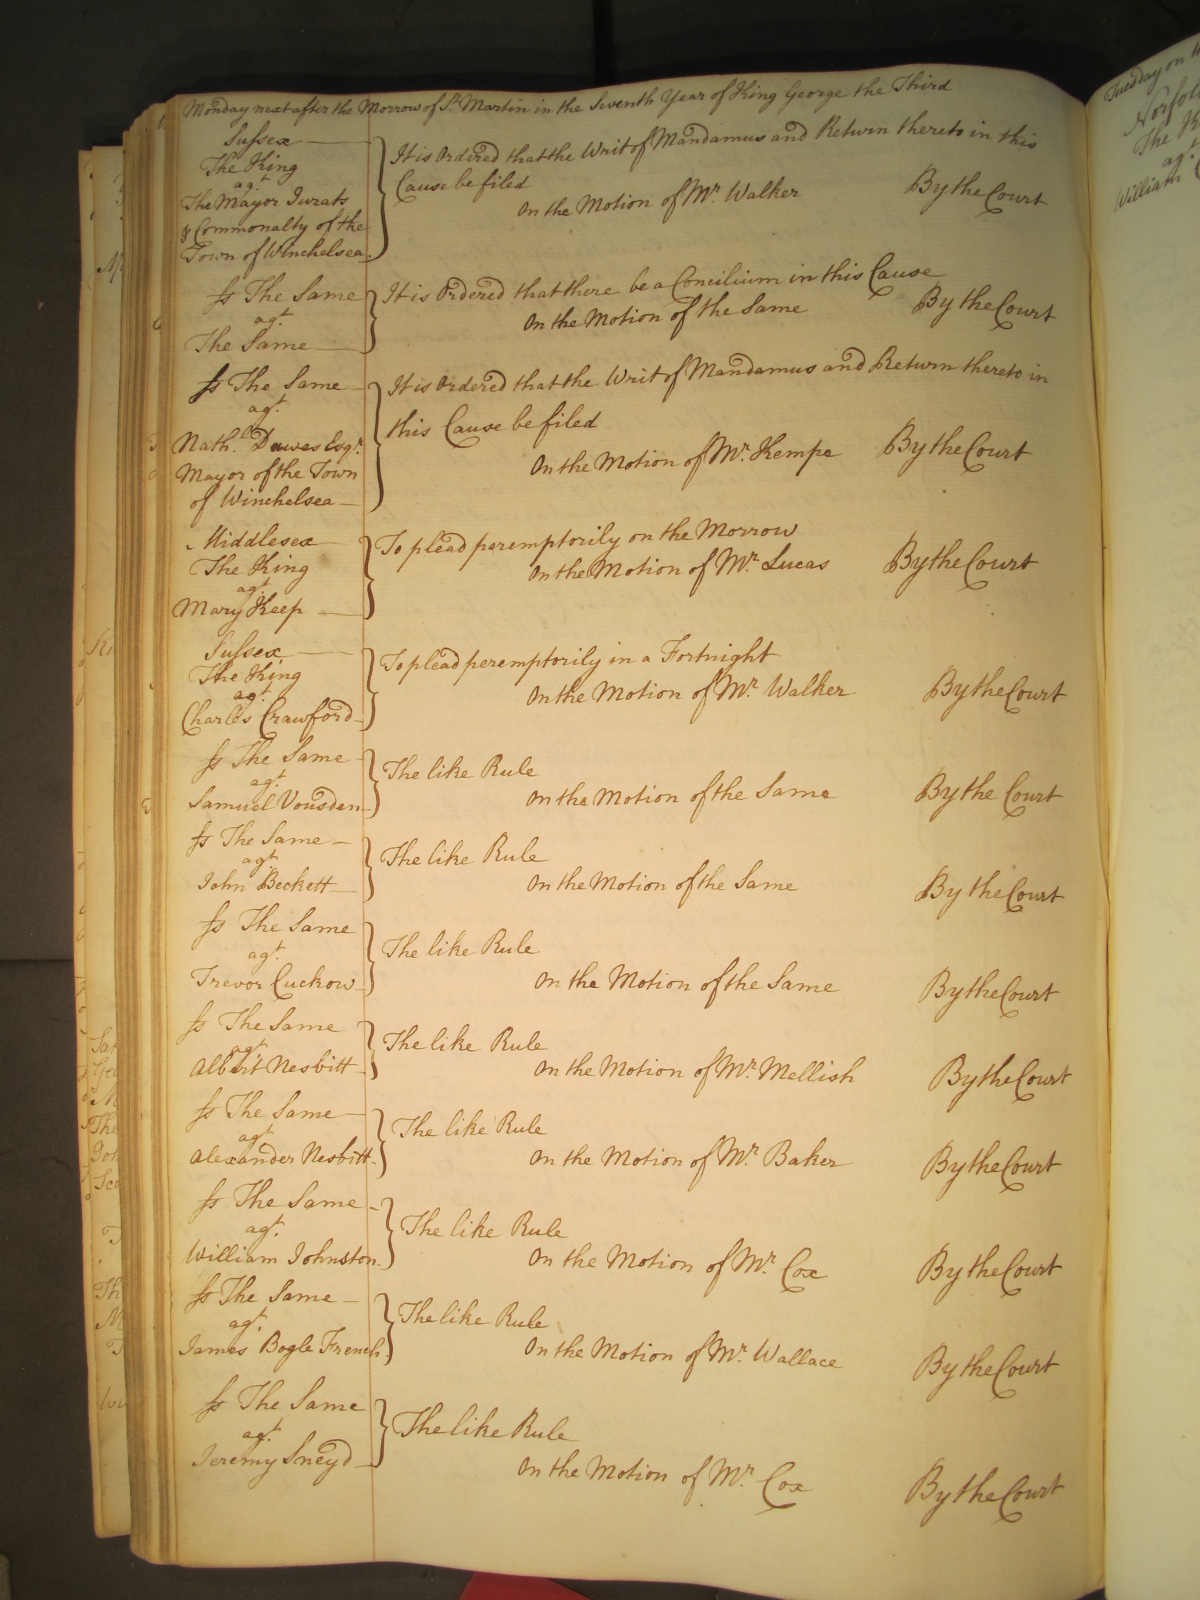 Monday next after the Morrow of St. Martin in the Seventh Year of King George the Third
Sussex
The King
agt.
The Mayor Jurats
& Commonalty of the
Town of Winchelsea
It is Ordered that the Writ of Mandamus and Return thereto in this
Cause be filed
On the Motion of Mr. Walker
By the Court
Ss The Same
agt.
The Same
It is Ordered that there be a Concilium in this Cause
On the Motion of the Same
By the Court
Ss The Same
agt.
Nathl. Dawes Esqr.
Mayor of the Town
of Winchelsea
It is Ordered that the Writ of Mandamus and Return thereto in
this Cause be filed
On the Motion of Mr. Kempe
By the Court
Middlesex
The King
agt.
Mary Keep
To plead peremptorily on the Morrow
On the Motion of Mr. Lucas
By the Court
Sussex
The King
agt.
Charles Crawford
To plead peremptorily in a Fortnight
On the Motion of Mr. Walker
By the Court
Ss The Same
agt.
Samuel Vousden
The like Rule
On the Motion of the Same
By the Court
Ss The Same
agt.
John Beckett
The like Rule
On the Motion of the Same
By the Court
Ss The Same
agt.
Trevor Cuckow
The like Rule
On the Motion of the Same
By the Court
Ss The Same
agt.
Albert Nesbitt
The like Rule
On the Motion of Mr. Mellish
By the Court
Ss The Same
agt.
Alexander Nesbitt
The like Rule
On the Motion of Mr. Baker
By the Court
Ss The Same
agt.
William Johnston
The like Rule
On the Motion of Mr. Cox
By the Court
Ss The Same
agt.
James Bogle French
The like Rule
On the Motion of Mr. Wallace
By the Court
Ss The Same
agt.
Jeremy Sneyd
The like Rule
On the Motion of Mr. Cox
By the Court
Tuesday on
The
agt.
William